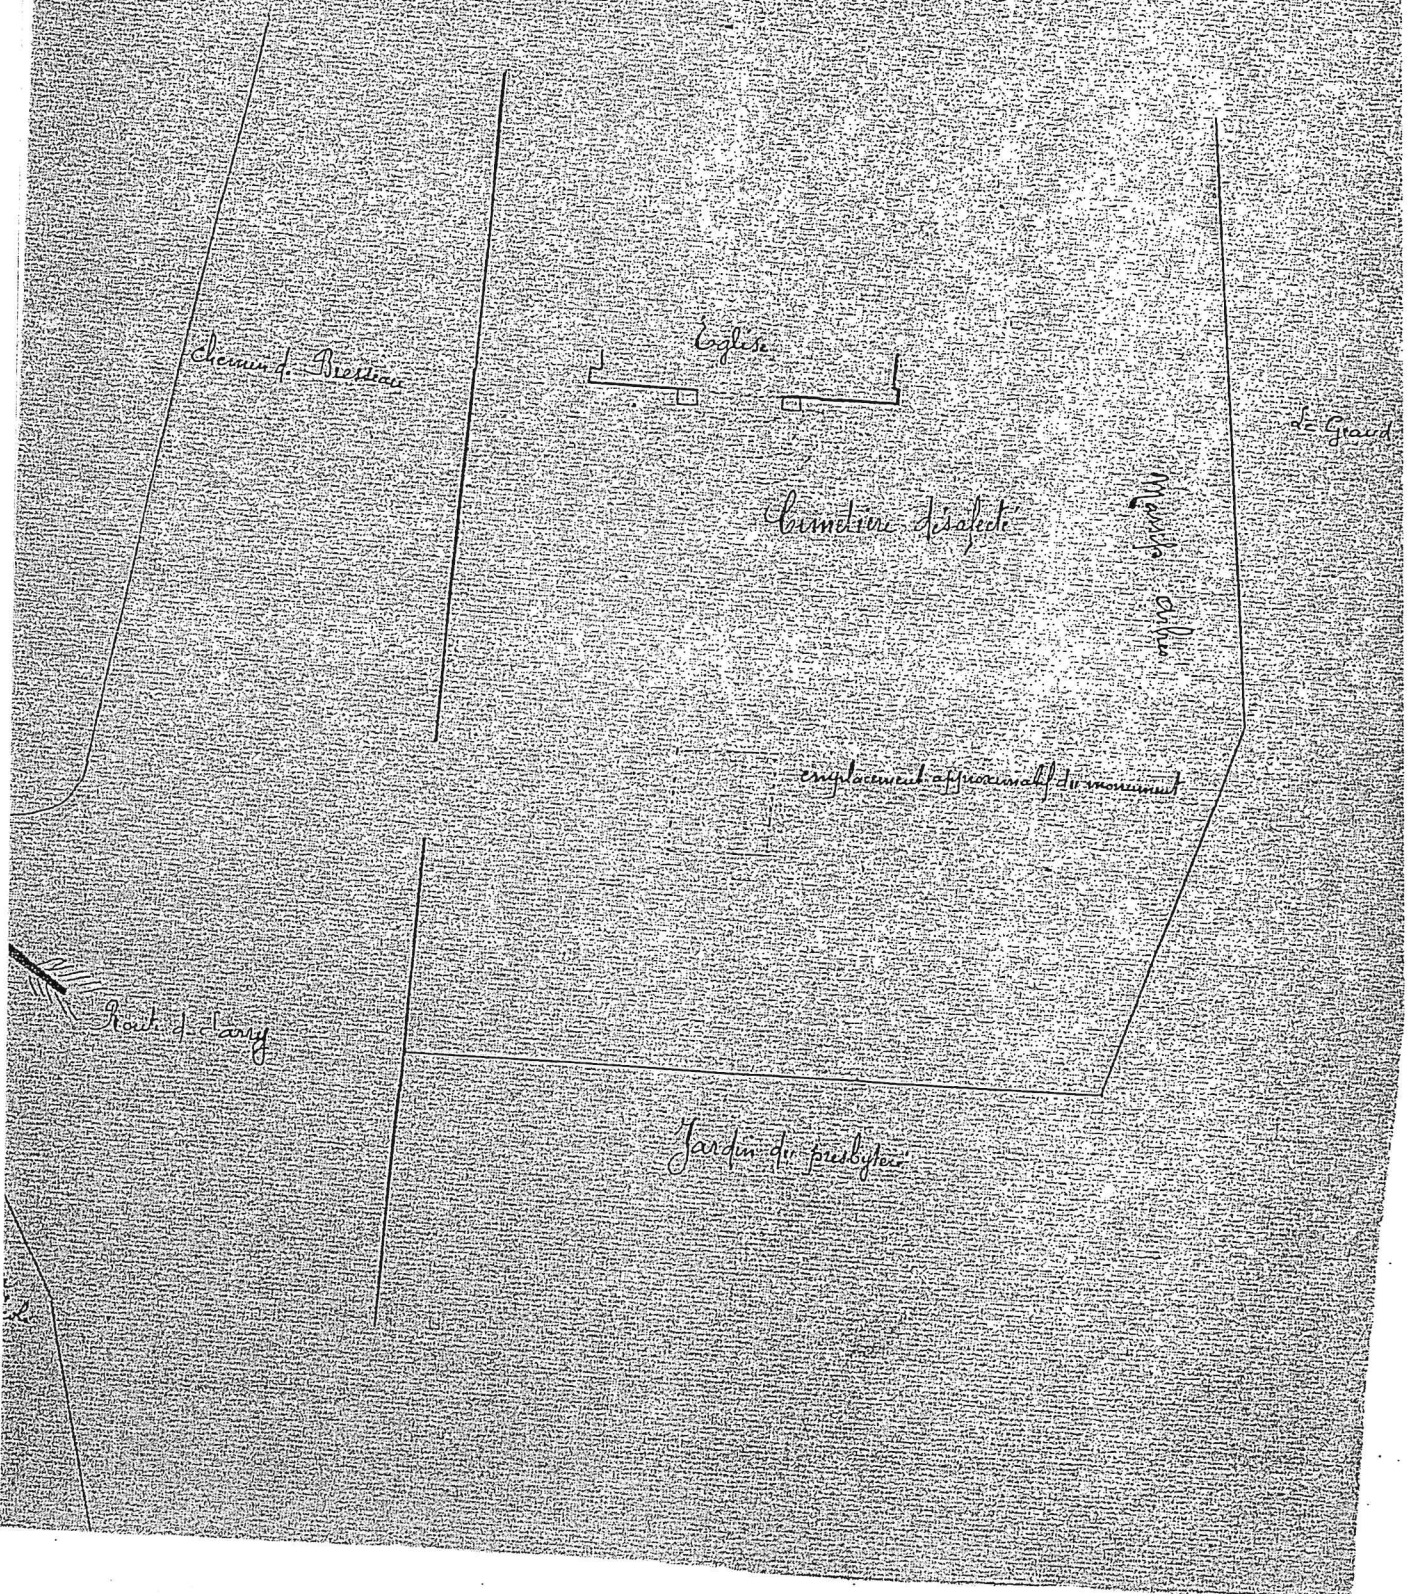 Église
chemin de
Le Grand
Cimetière désafecté
Massif arbre
emplacement approximatif du monument
Route de
Jardin du presbytère